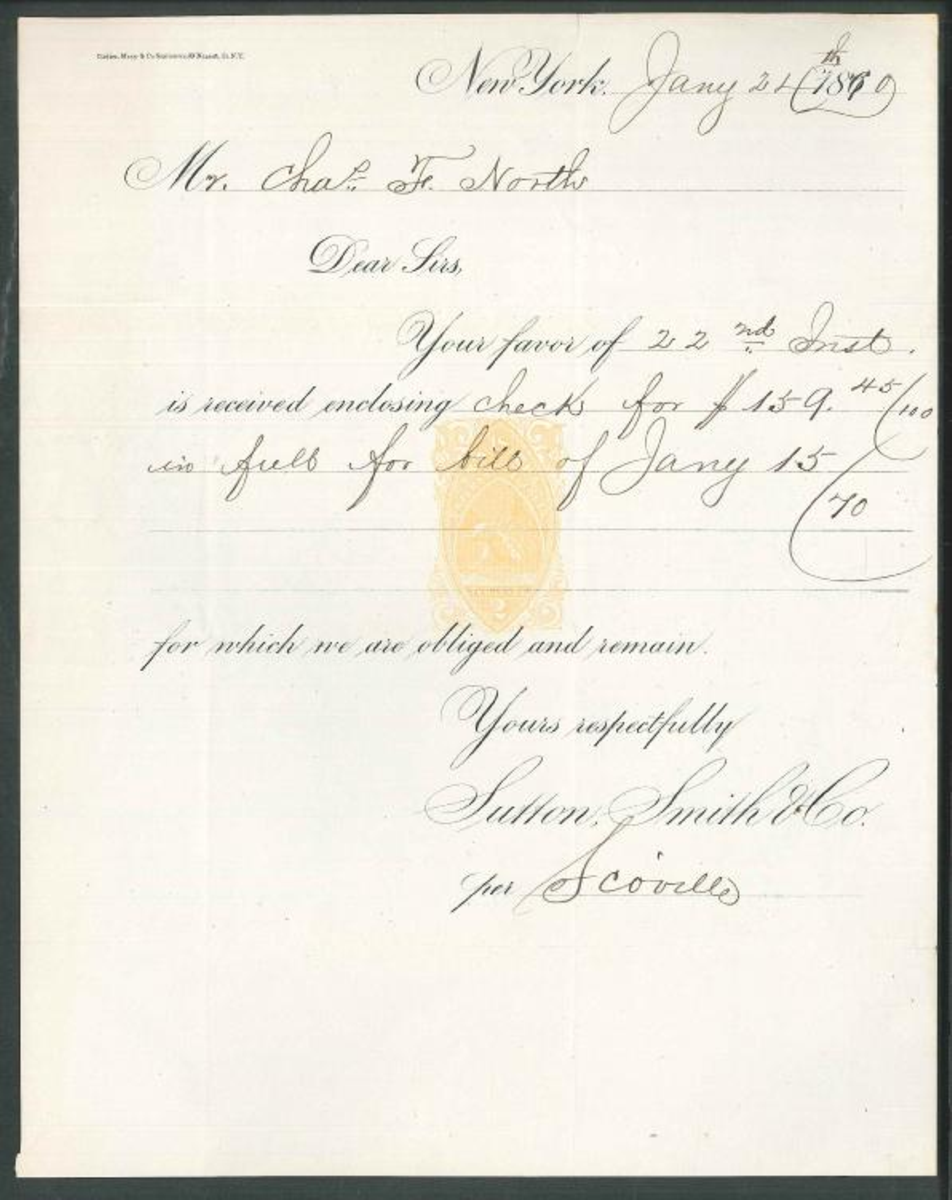 New York. Jany 24th 1870
Mr. Chas. F. North
Dear Sirs,
Your favor of 22nd Inst.
is received enclosing check for $159.45/100
in full for bill of Jany 15
70
for which we are obliged and remain.
Yours respectfully
Sutton, Smith & Co.
per Scoville